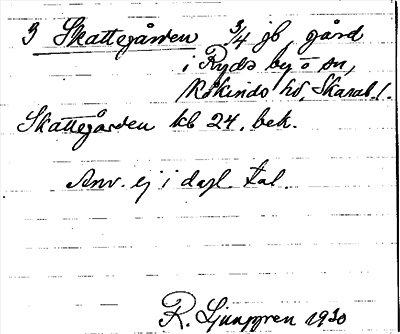 3 Skattegården 3/4 gb, gård
i Ryds by o sn,
Kåkinds hd, Skarab. l.
Skattegården kb 24. bek.
Anv. ej i dagl. tal.
R. Ljunggren 1930